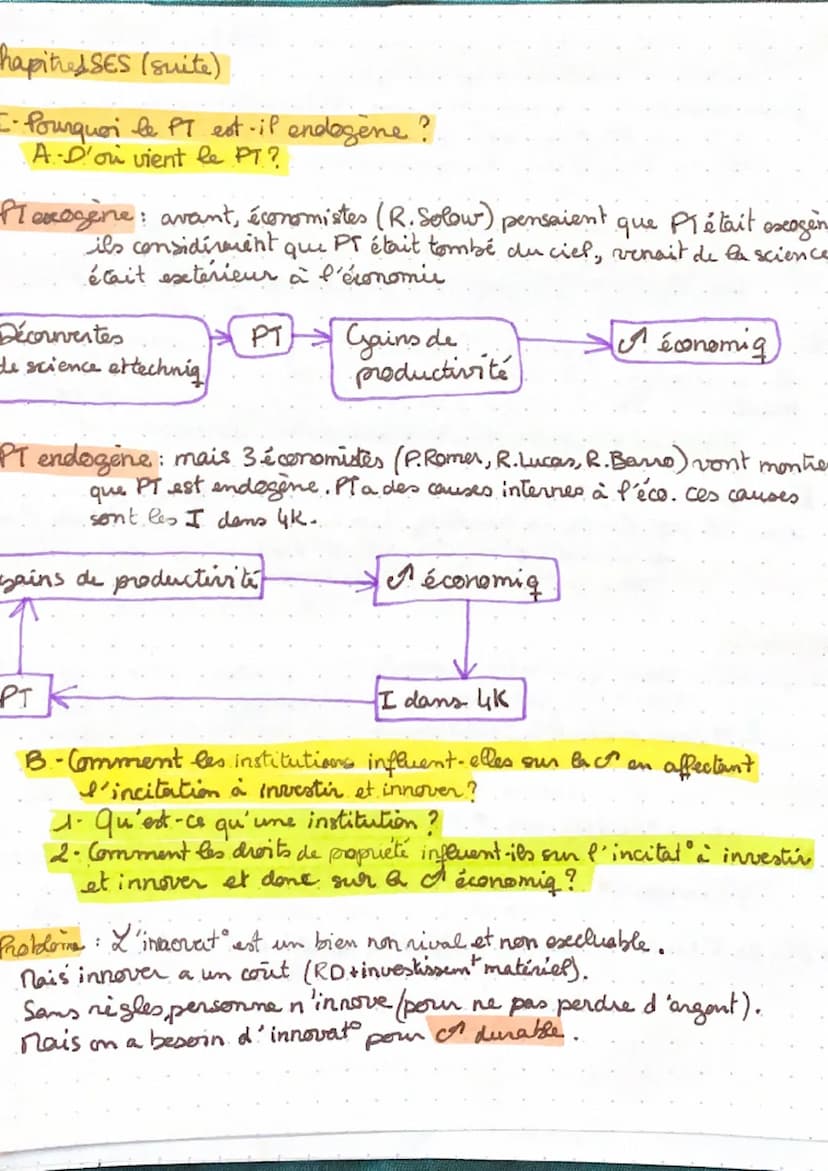 hapitre 1 SES (suite)
I- Pourquoi le PT est-il endogène ?
A.- D'où vient le PT ?
PT exogène : avant, économistes (R. Solow) pensaient que PT était exogèn
ils considéraient que PT était tombé du ciel, venait de la science
était extérieur à l'économie
Découvertes
de science et techniq
PT
Gains de
productivité
↗ économiq
PT endogène : mais 3 économistes (P. Romer, R. Lucas, R. Barro) vont montre
que PT est endogène. PT a des causes internes à l'éco. ces causes
sont les I dans 4K.
gains de productivité
↗ économiq
PT
I dans 4K
B - Comment les institutions influent-elles sur la ↗ en affectant
l'incitation à investir et innover ?
1- Qu'est-ce qu'une institution ?
2- Comment les droits de propriété influent-ils sur l'incitat° à investir
et innover et donc sur la ↗ économiq ?
Problème : L'innovat° est un bien non rival et non excluable.
Mais innover a un coût (RD + investissemt matériel).
Sans règles, personne n'innove (pour ne pas perdre d'argent).
Mais on a besoin d'innovat° pour ↗ durable.